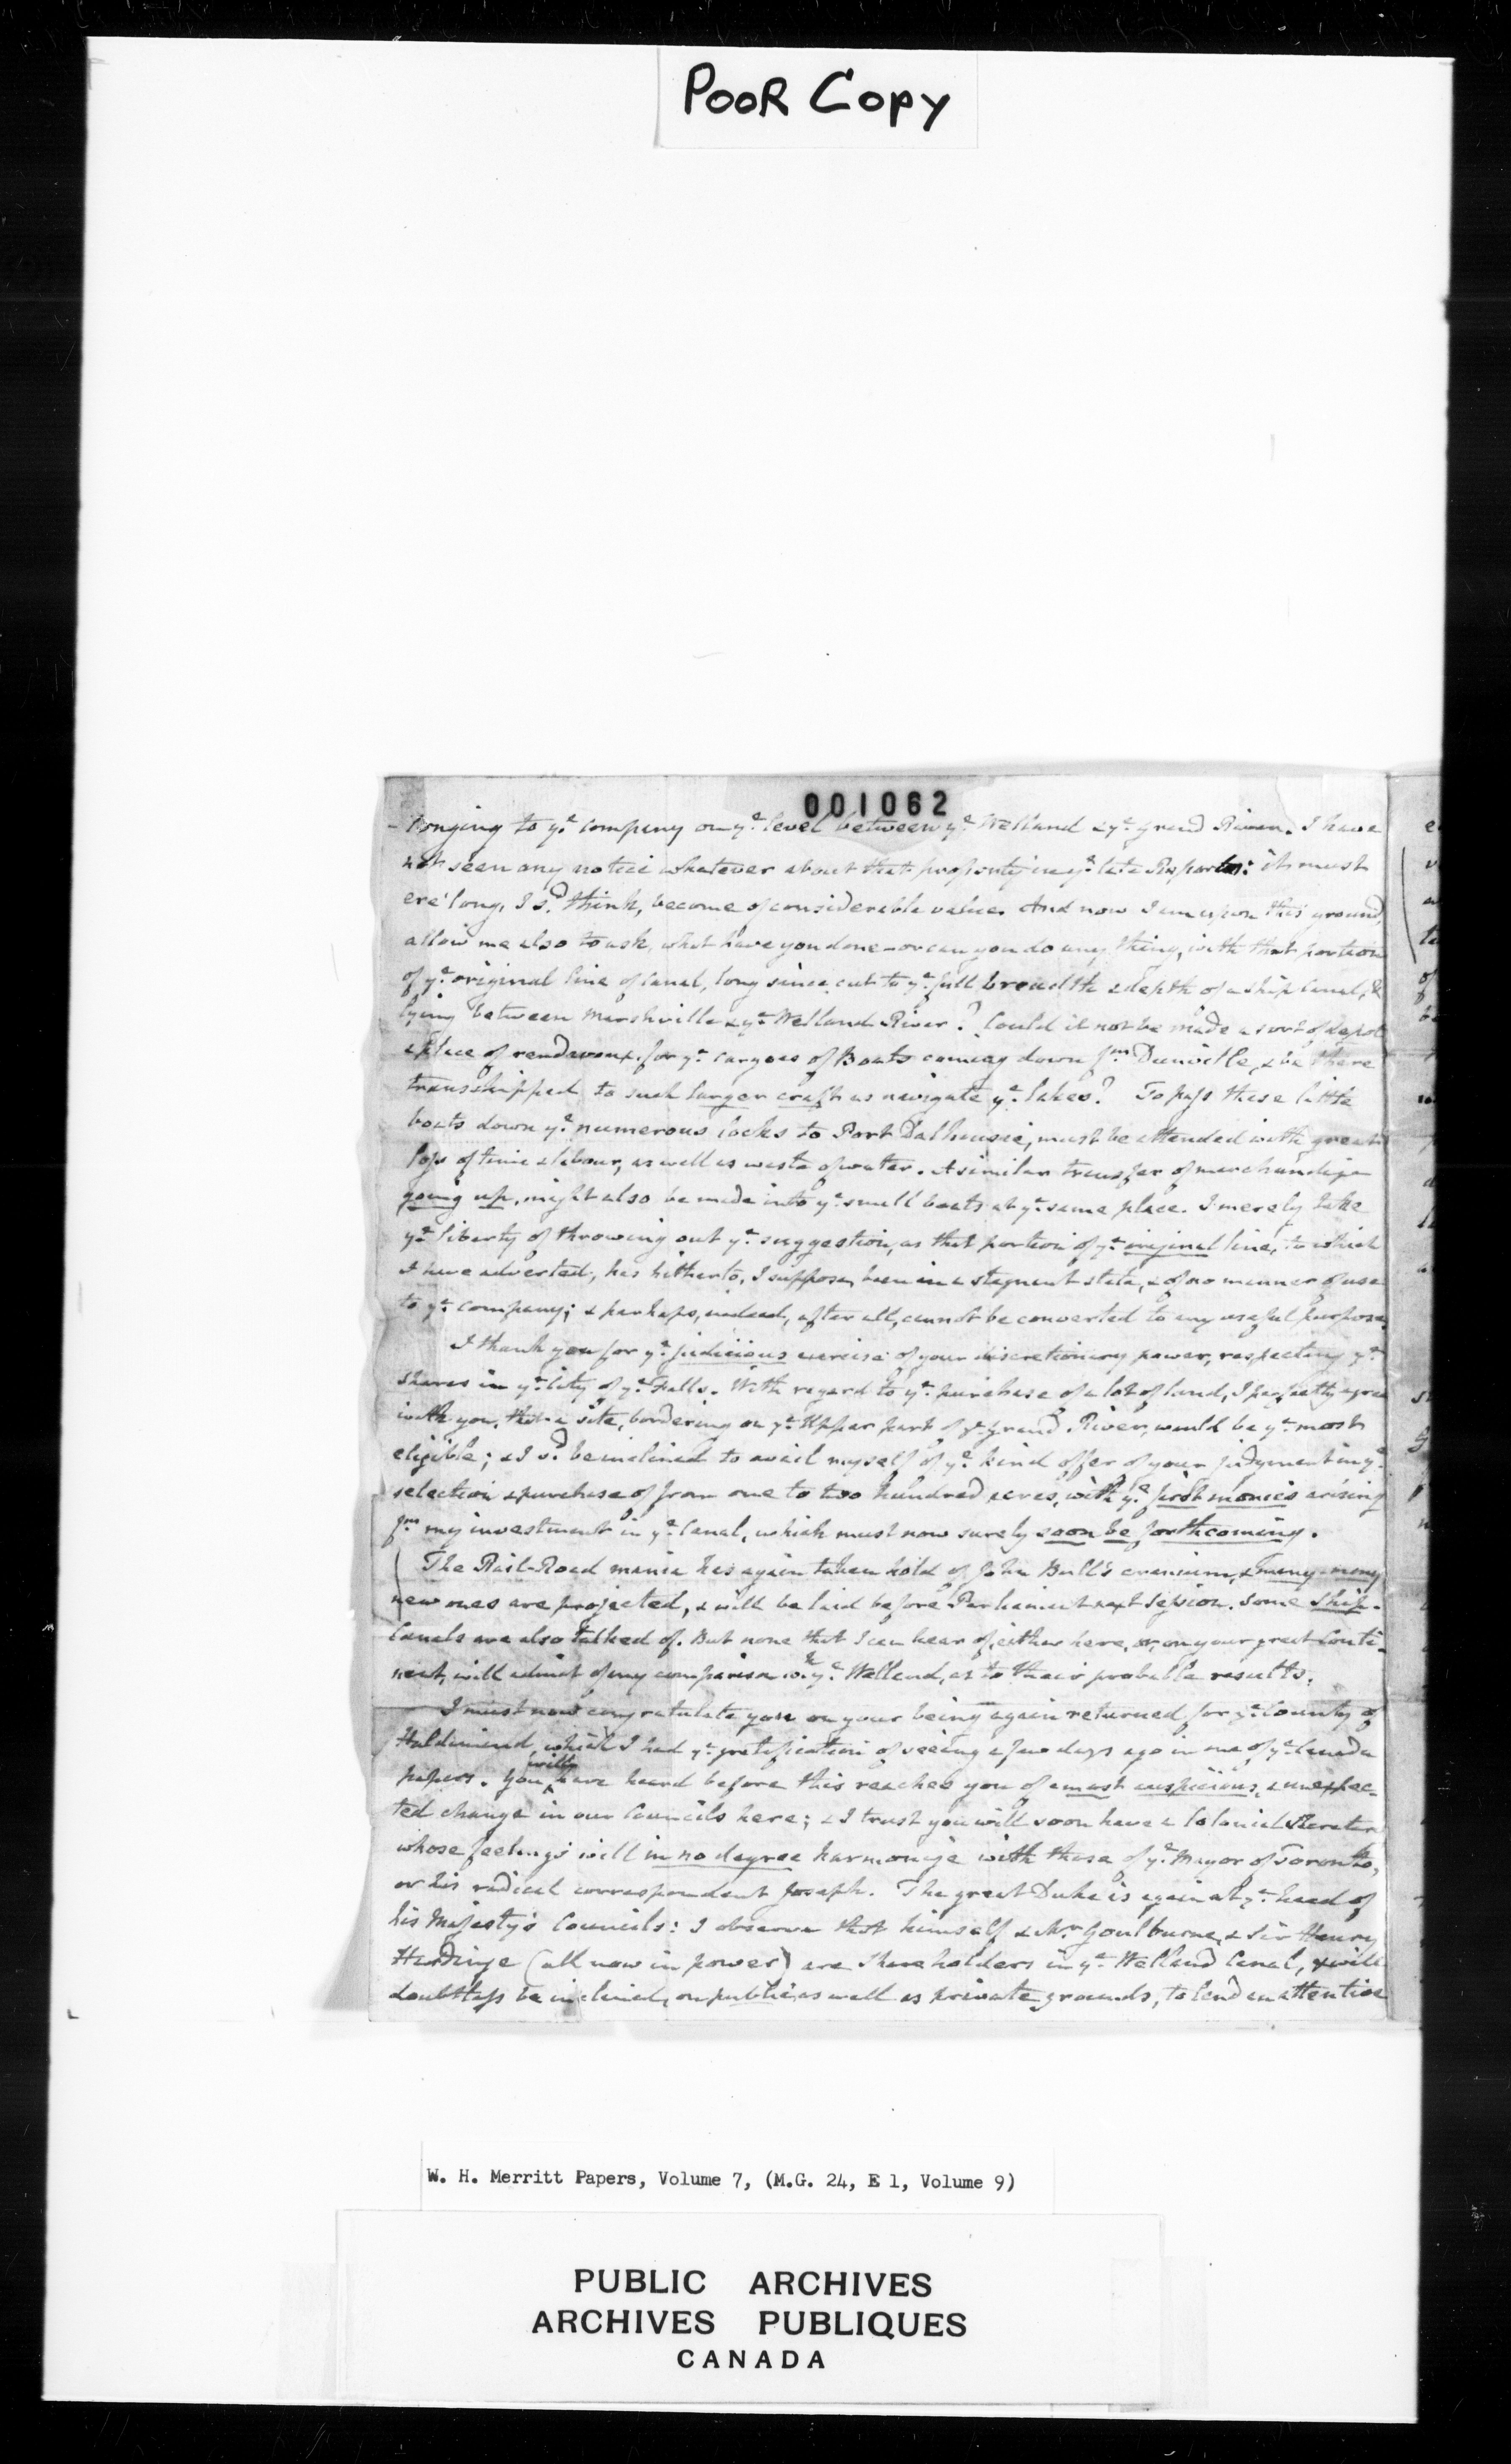 POOR COPY
001062
-longing to ye. company on ye. level between ye. Welland & ye. grand River. I have
not seen any notice whatever about that property in ye. late Reports: it must
ere' long, I sd. think, become of considerable value. And now I am upon this ground,
allow me also to ask, what have you done - or can you do any thing, with that portion
of ye. original line of canal, long since cut to ye. full breadth & depth of a ship Canal, &
lying between Marshville & ye. Welland River? Could it not be made a sort of depot
& place of rendevoux for ye. cargoes of Boats coming down fm. Dunville, & be there
transshipped to such larger craft as navigate ye. lakes? To pass these little
boats down ye. numerous locks to Port Dalhousie, must be attended with great
loss of time & labour, as well as waste of water. A similar transfer of merchandize
going up, might also be made into ye. small boats at ye. same place. I merely take
ye. liberty of throwing out ye. suggestion, as that portion of ye. original line, to which
I have adverted, has hitherto, I suppose, been in a stagnant state, & of no manner of use
to ye. company; & perhaps, indeed, after all, cannot be converted to any useful purpose.
I thank you for ye. judicious exercise of your discretionary power, respecting ye.
shares in ye. City of ye. Falls. With regard to ye. purchase of a lot of land, I perfectly agree
with you, that a site, bordering on ye. Upper part of ye. grand River, would be ye. most
eligible; & I sd. be inclined to avail myself of ye. kind offer of your judgment in ye.
selection & purchase of from one to two hundred acres, with ye. first monies arising
fm. my investment in ye. Canal, which must now surely soon be forthcoming.
The Rail-Road mania has again taken hold of John Bull's cranium, & many-many
new ones are projected, & will be laid before Parliament next Session. Some Ship-
Canals are also talked of. But none that I can hear of, either here, or, on your great Conti-
nent, will admit of any comparison wh. ye. Welland, as to their probable results.
I must now congratulate you on your being again returned for ye. County of
Haldimand, which I had ye. gratification of seeing a few days ago in one of ye. Canada
papers. You will have heard before this reaches you of a most auspicious, & unexpec-
ted change in our Councils here; & I trust you will soon have a Colonial Secretary
whose feelings will in no degree harmonize with those of ye. Mayor of Toronto,
or his radical correspondent Joseph. The great Duke is again at ye. head of
his Majesty's Councils: I observe that himself & Mr. Goulburne, & Sir Henry
Hardinge (all now in power) are Shareholders in ye. Welland Canal, & will
doubtless be inclined, on public, as well as private grounds, to lend an attentive
W. H. Merritt Papers, Volume 7, (M.G. 24, E 1, Volume 9)
PUBLIC ARCHIVES
ARCHIVES PUBLIQUES
CANADA